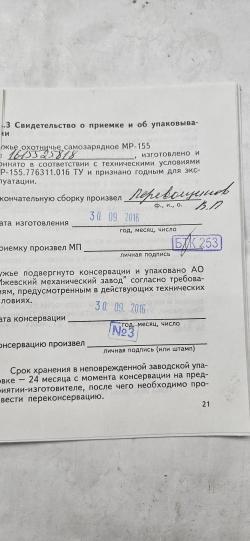 .3 Свидетельство о приемке и об упаковыва-
ии
жье охотничье самозарядное МР-155
1615525818, изготовлено и
ринято в соответствии с техническими условиями
Р-155.776311.016 ТУ и признано годным для экс-
луатации.
кончательную сборку произвел Перевощиков
ф., и., о. В.П
ата изготовления 30 09 2016
год, месяц, число
риемку произвел МП БТК 253
личная подпись
ужье подвергнуто консервации и упаковано АО
Ижевский механический завод" согласно требова-
иям, предусмотренным в действующих технических
словиях.
ата консервации 30 09. 2016
год, месяц, число
№3
онсервацию произвел
личная подпись (или штамп)
Срок хранения в неповрежденной заводской упа-
овке – 24 месяца с момента консервации на пред-
риятии-изготовителе, после чего необходимо про-
вести переконсервацию.
21